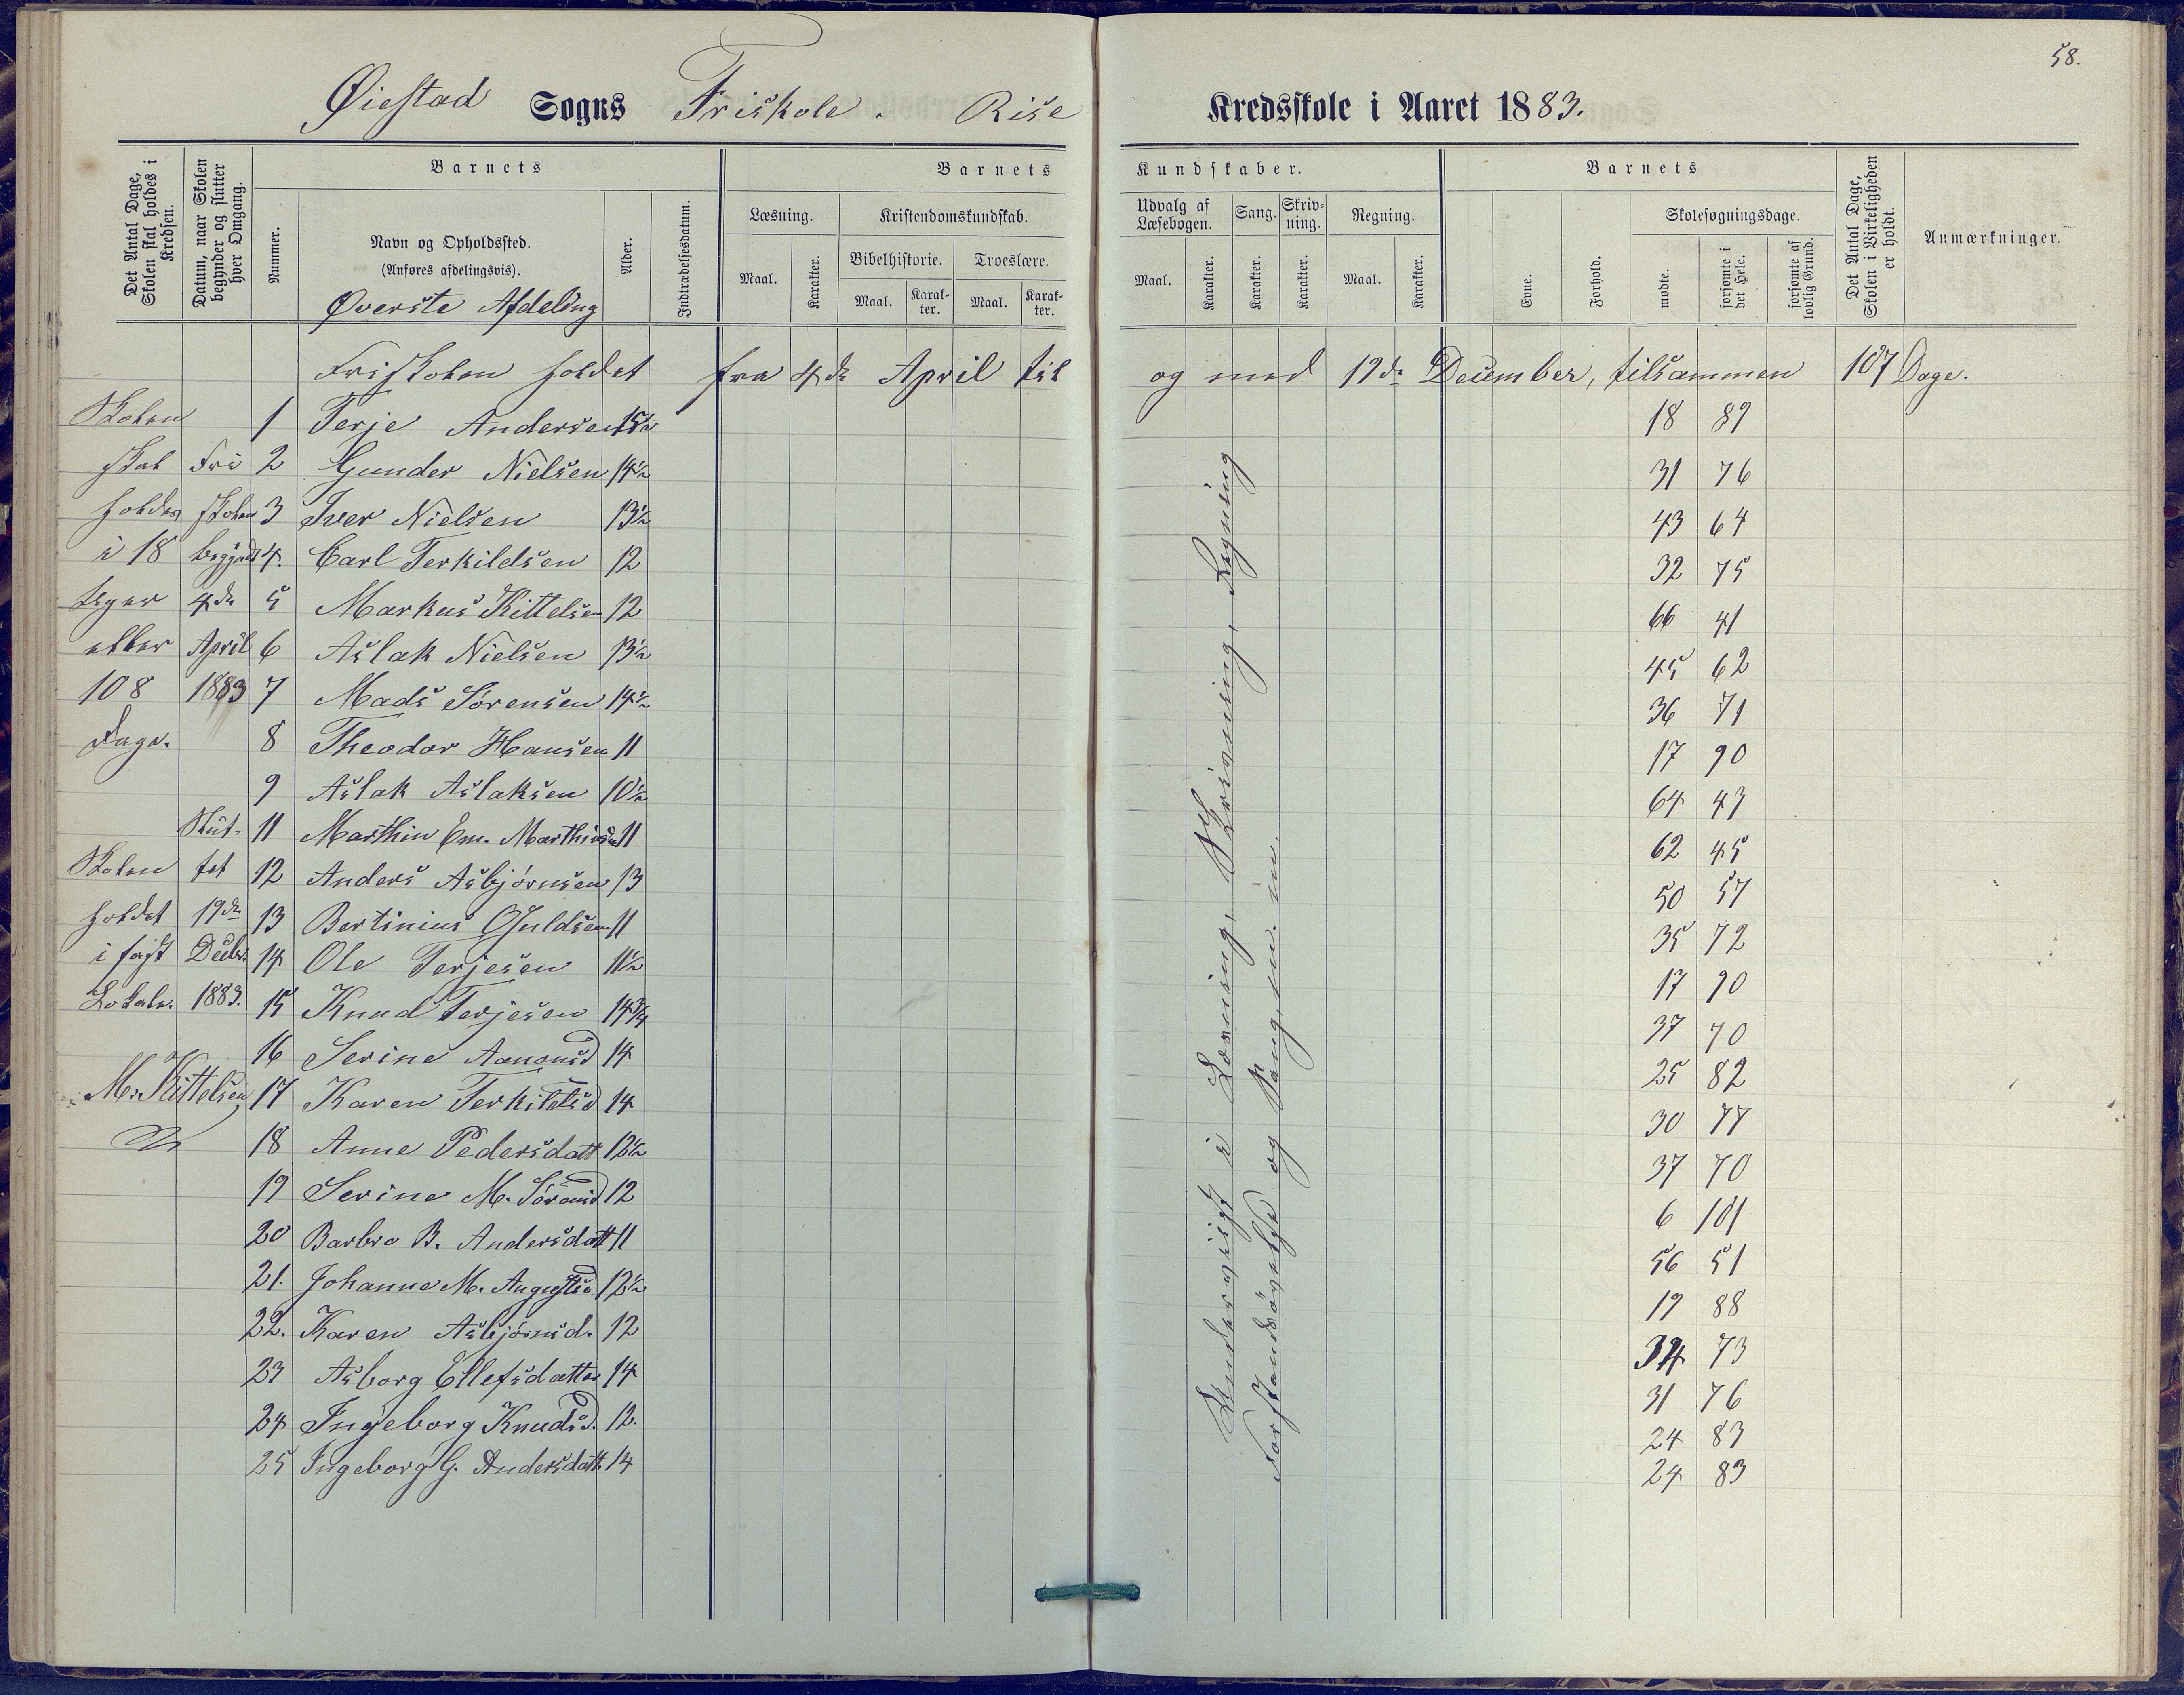 58.
Øiestad Sogns Friskole. Rise Kredsskole i Aaret 1883.
Det Antal Dage, Skolen skal holdes i Kredsen.
Datum, naar Skolen begynder og slutter hver Omgang.
Barnets
Nummer.
Navn og Opholdssted.
(Anføres afdelingsvis).
Øverste Afdeling
Alder.
Indtrædelsesdatum.
Barnets Kundskaber.
Læsning.
Maal.
Karakter.
Kristendomskundskab.
Bibelhistorie.
Maal.
Karak-
ter.
Troeslære.
Maal.
Karak-
ter.
Udvalg af
Læsebogen.
Maal.
Karakter.
Sang.
Karakter.
Skriv-
ning.
Karakter.
Regning.
Maal.
Karakter.
Barnets
Evne.
Forhold.
Skolesøgningsdage.
mødte.
forsømte i det Hele.
forsømte af lovlig Grund.
Det Antal Dage, Skolen i Virkeligheden er holdt.
Anmærkninger.
Friskolen holdet fra 4de April til og med 19de December, tilsammen 107 Dage.
Skolen
skal
holdes
i 18
Uger
eller
108
Dage.
Skolen
holdet
i fast
Lokale.
M. Kittelsen
Fri
skolen
begyndt
4de
April
1883
Slut-
tet
19de
Decbr.
1883.
1 Terje Andersen 15½ 18 89
2 Gunder Nielsen 14½ 31 76
3 Iver Nielsen 13½ 43 64
4. Carl Terkildsen 12 32 75
5 Markus Kittelsen 12 66 41
6 Aslak Nielsen 13½ 45 62
7 Mads Sørensen 14½ 36 71
8 Theodor Hansen 11 17 90
9 Aslak Aslaksen 10½ 64 43
11 Marthin Em. Marthinsen 11 62 45
12 Anders Asbjørnsen 13 50 57
13 Bertinius Guldsen 11 35 72
14 Ole Terjesen 11½ 17 90
15 Knud Terjesen 14¾ 37 70
16 Serine Aanonsd 14 25 82
17 Karen Terkildsd 14 30 77
18 Anne Pedersdatt 12½ 37 70
19 Serine M. Sørensd 12 6 101
20 Barbro B. Andersdatt 11 56 51
21. Johanne M. Augustsd 12½ 19 88
22. Karen Asbjørnsd. 12 34 73
23 Asborg Ellefsdatter 14 31 76
24 Ingeborg Knudsd. 12. 24 83
25 Ingeborg G. Andersdatt. 14 24 83
Undervist i Læsning, Skrivning, Regning
Forstandsøvelse og Sang, m. m.